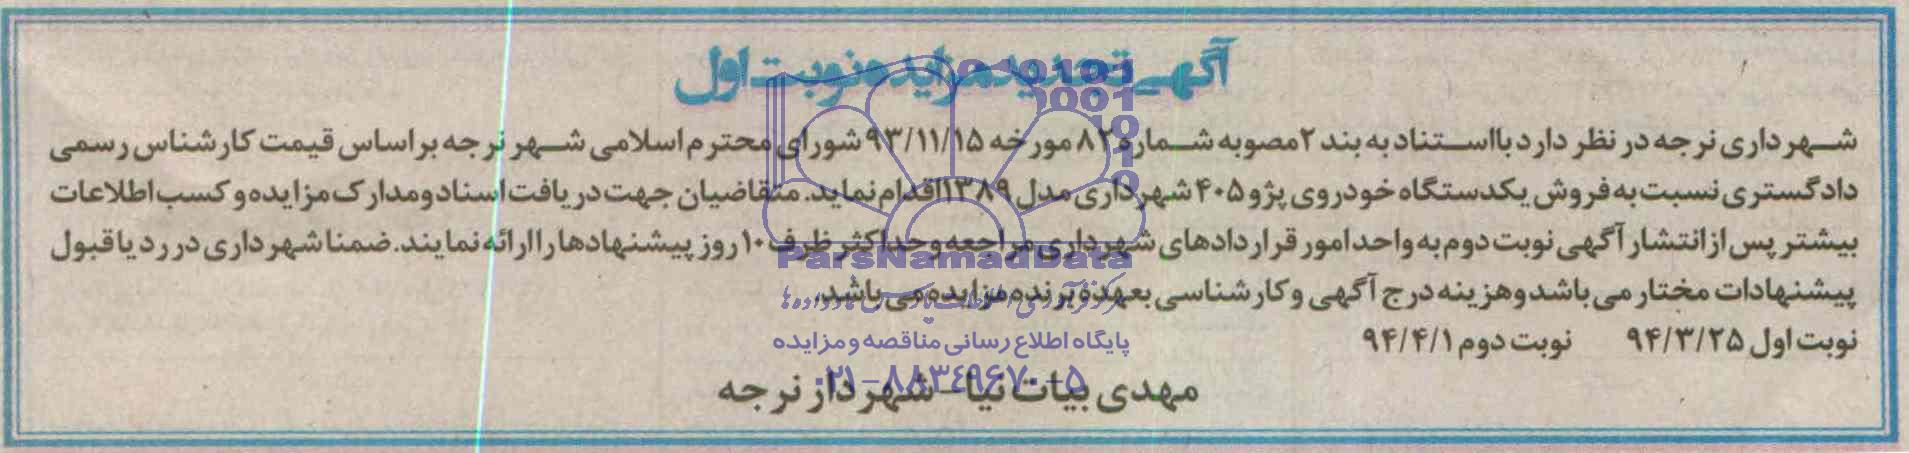 آگهی تجدید مزایده نوبت اول
شهرداری نرجه در نظر دارد با استناد به بند ۲ مصوبه شماره ۸۲ مورخه ۹۳/۱۱/۱۵ شورای محترم اسلامی شهر نرجه بر اساس قیمت کارشناس رسمی
دادگستری نسبت به فروش یکدستگاه خودروی پژو ۴۰۵ شهرداری مدل ۱۳۸۹ اقدام نماید. متقاضیان جهت دریافت اسناد و مدارک مزایده و کسب اطلاعات
بیشتر پس از انتشار آگهی نوبت دوم به واحد امور قراردادهای شهرداری مراجعه و حداکثر ظرف ۱۰ روز پیشنهادها را ارائه نمایند. ضمنا شهرداری در رد یا قبول
ParsNamadData
پیشنهادات مختار می باشد و هزینه درج آگهی و کارشناسی بعهده برنده مزایده می باشد.
نوبت اول ۹۴/۳/۲۵ نوبت دوم ۹۴/۴/۱
پایگاه اطلاع رسانی مناقصه و مزایده
۰۲۱-۸۸۳۴۹۶۷۰-۵
مهدی بیات نیا - شهردار نرجه